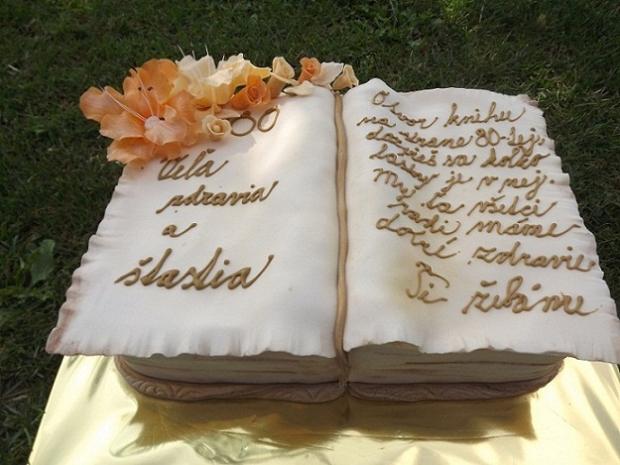 80
Veľa
zdravia
a
šťastia
Otvor knihu
na strane 80-tej,
dozvieš sa koľko
lásky je v nej.
My ťa všetci
radi máme
dobré zdravie
Ti želáme